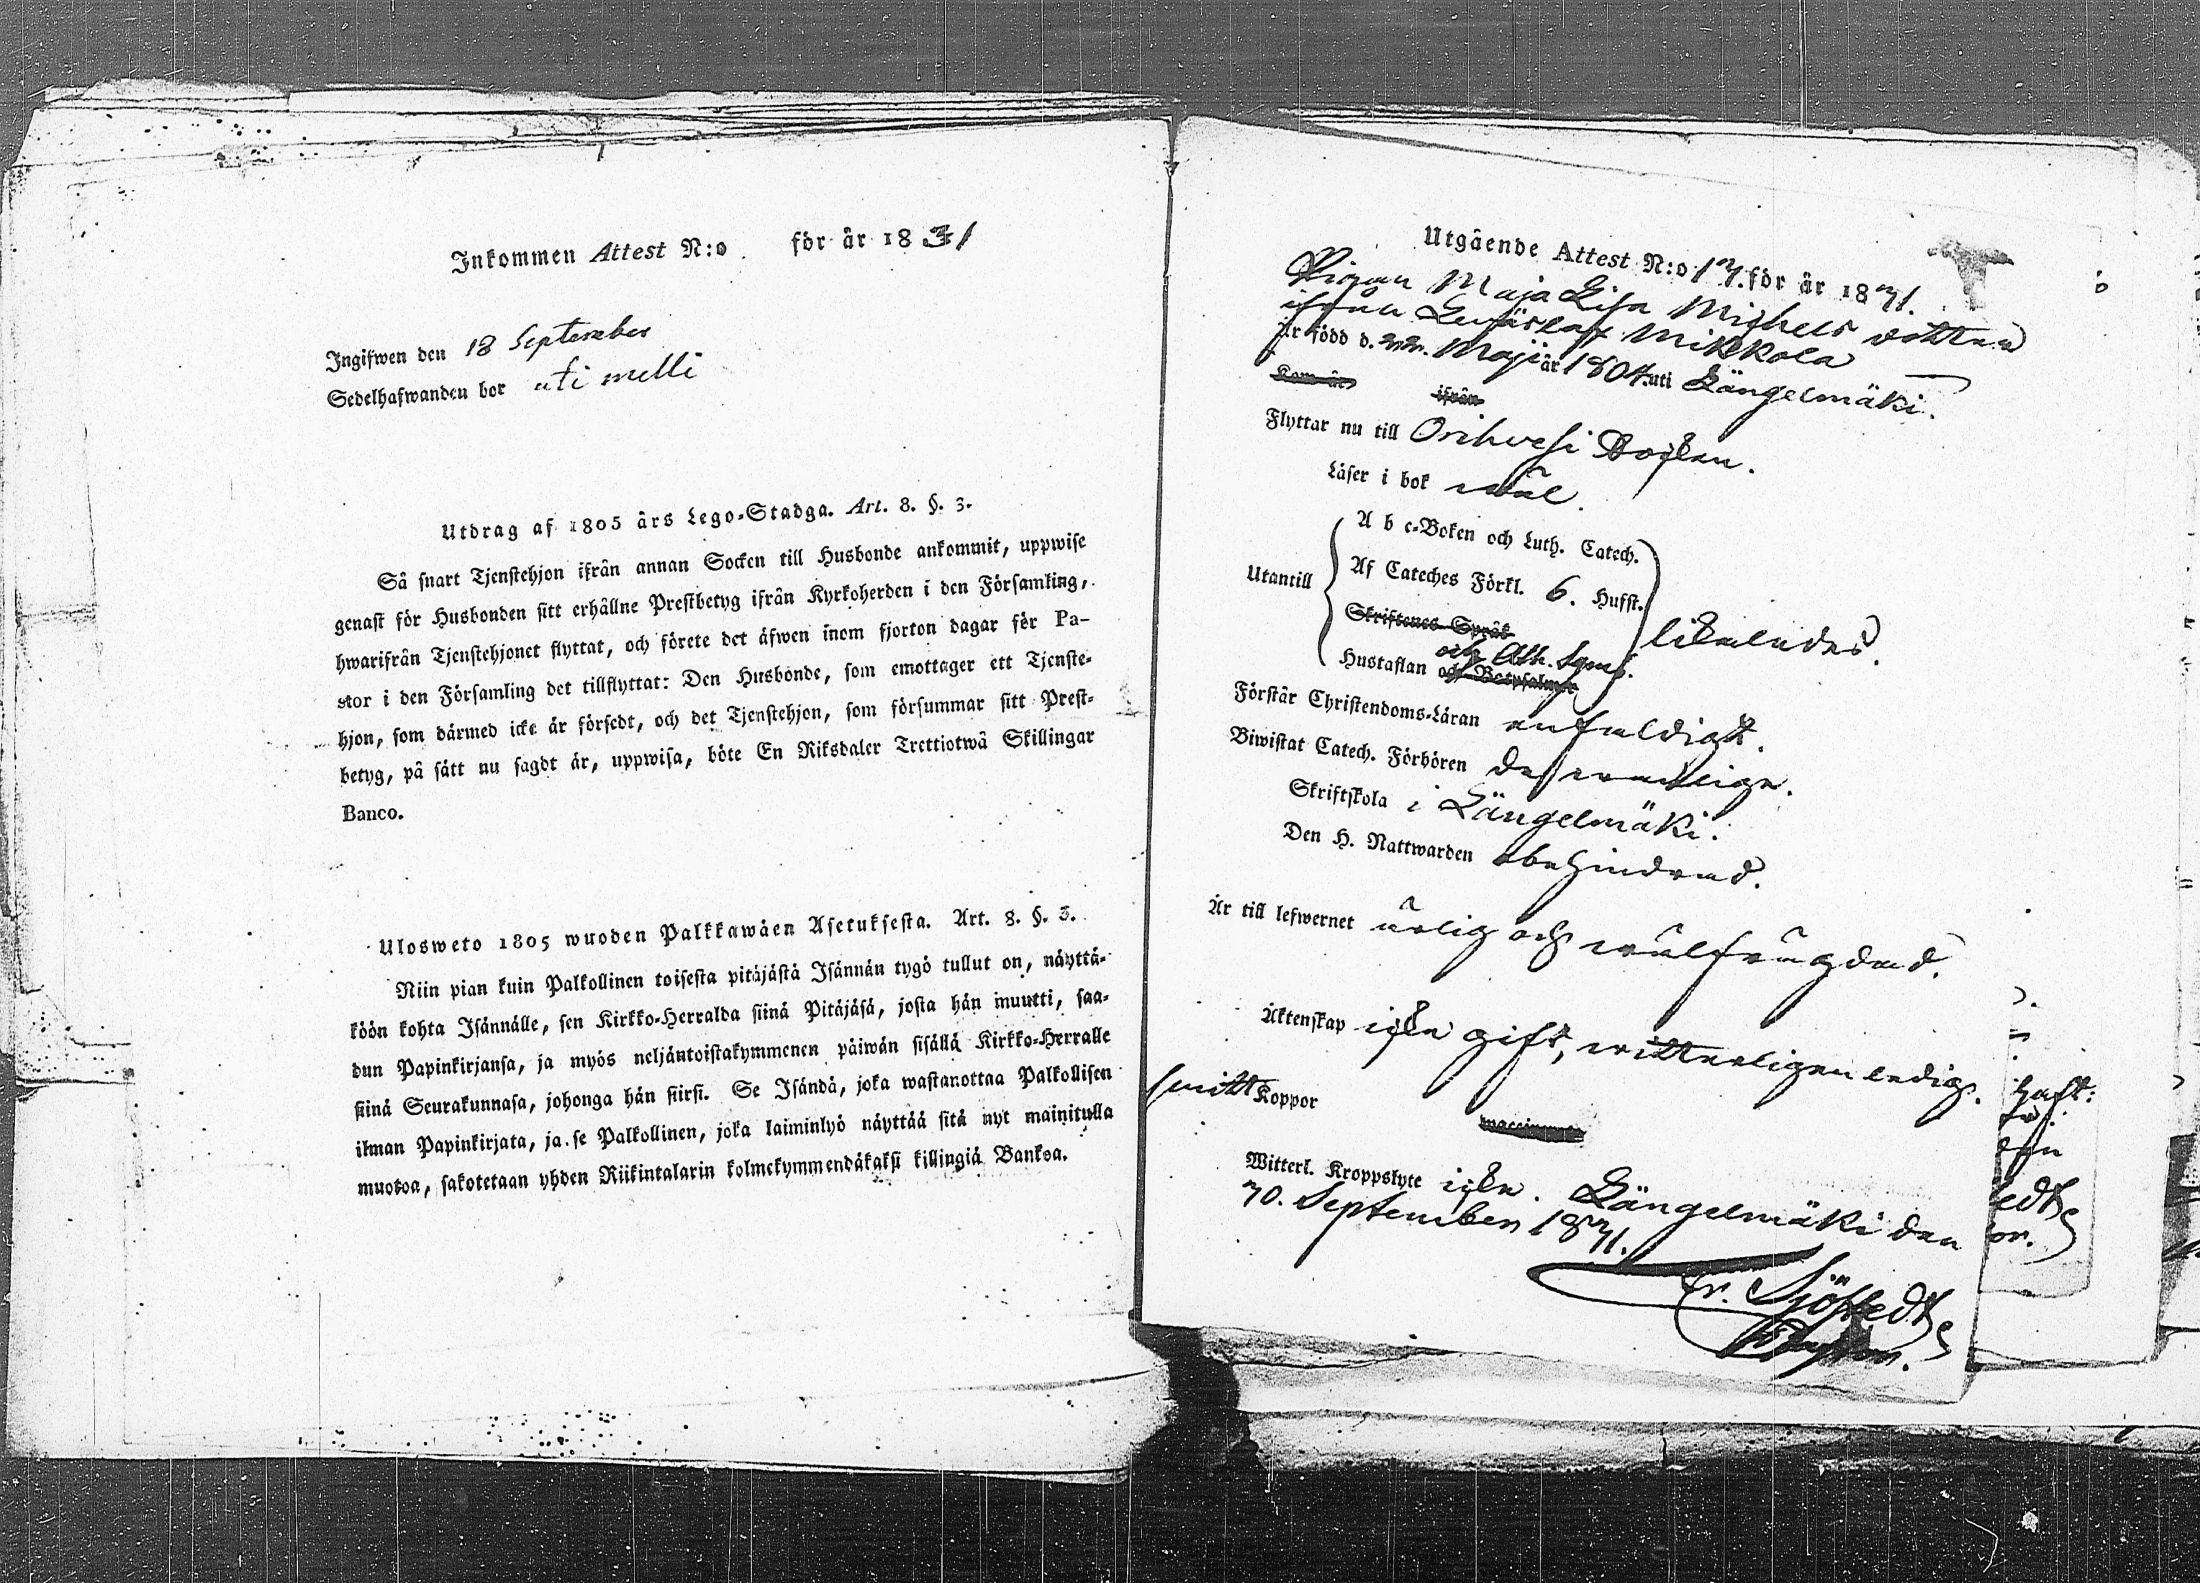 Inkommen Attest N:o för år 1831
Ingifwen den 18 September
Sedelhafwanden bor uti melli
Utdrag af 1805 års Lego-Stadga. Art. 8. §. 3.
Så snart Tjenstehjon ifrån annan Socken till Husbonde ankommit, uppwise
genast för Husbonden sitt erhållne Prestbetyg ifrån Kyrkoherden i den Församling,
hwarifrån Tjenstehjonet flyttat, och förete det äfwen inom fjorton dagar för Pa-
stor i den Församling det tillflyttat: Den Husbonde, som emottager ett Tjenste-
hjon, som därmed icke är försedt, och det Tjenstehjon, som försummar sitt Prest-
betyg, på sätt nu sagdt är, uppwisa, böte En Riksdaler Trettiotwå Skillingar
Banco.
Ulosweto 1805 wuoden Palkkawäen Asetuksesta. Art. 8. §. 3.
Niin pian kuin Palkollinen toisesta pitäjästä Isännän tygö tullut on, näyttä-
köön kohta Isännälle, sen Kirkko-Herralda siinä Pitäjäsä, josta hän muutti, saa-
dun Papinkirjansa, ja myös neljäntoistakymmenen päiwän sisällä Kirkko-Herralle
siinä Seurakunnasa, johonga hän siirsi. Se Isändä, joka wastanottaa Palkollisen
ilman Papinkirjata, ja se Palkollinen, joka laiminlyö näyttää sitä nyt mainitulla
muotoa, sakotetaan yhden Riikintalarin kolmekymmendäkaksi killingiä Bankoa.
Utgående Attest N:o 13. för år 1831.
Pigan Maja Lisa Michels dotter
ifrån Mikkola
Är född d. 22. Maji år 1804. uti Längelmäki.
Kom år ifrån
Flyttar nu till Orihvesi Socken.
Läser i bok wäl.
A b c-Boken och Luth. Catech.
Utantill Af Cateches Förkl. 6. Hufst.
Skriftenes Språk likaledes.
och Ath. Symb.
Hustaflan och Botpsalmer
Förstår Christendoms-Läran enfaldigt.
Biwistat Catech. Förhören de wanlige.
Skriftskola i Längelmäki.
Den H. Nattwarden obehindrad.
Är till lefwernet ärlig och wälfrägdad.
Äktenskap icke gift, witterligen ledig.
haft Koppor
waccinerad
Witterl. Kroppslyte icke. Längelmäki den
30. September 1831.
Er. Sjöstedt